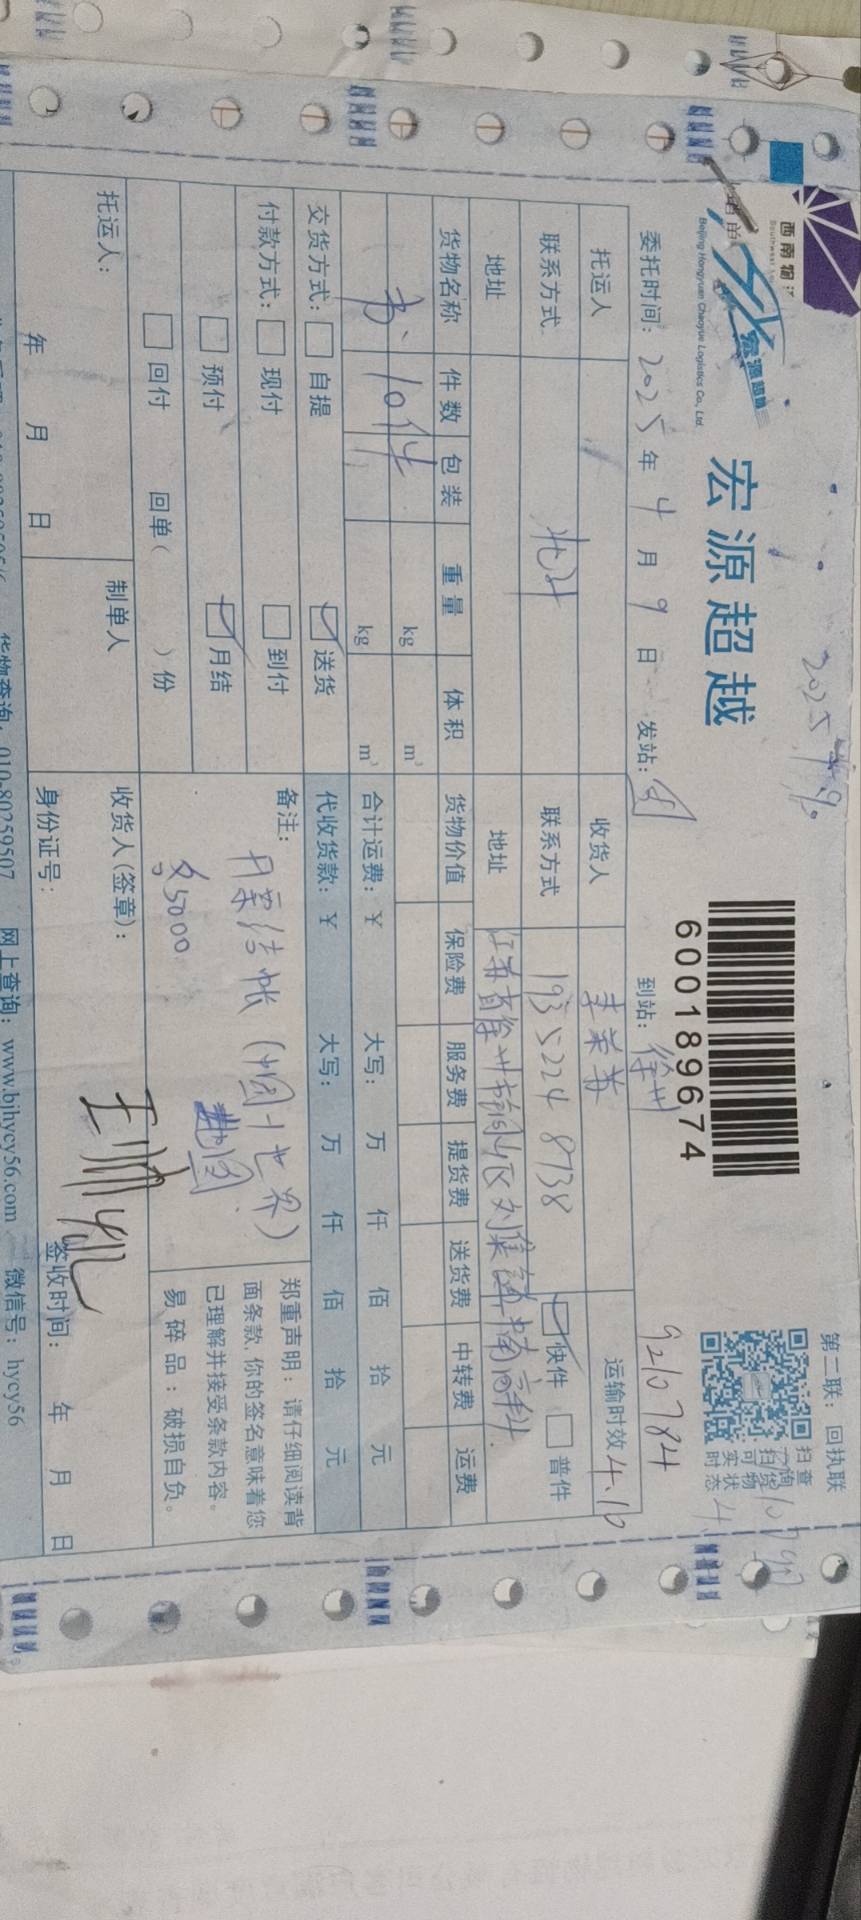 2025.4.9
第二联：回执联
西南物流
宏源超越
Beijing Hongyuan Chaoyue Logistics Co., Ltd.
宏源超越
600189674
扫查
货物
实状
时态
9210784
委托时间：2025年4月9日 发站： 到站：徐州
托运人 收货人 运输时效 4.10
联系方式 联系方式 193 5224 8738 快件 普件
地址 地址 江苏省徐州市铜山区刘集镇
货物名称 件数 包装 重量 体积 货物价值 保险费 服务费 提货费 送货费 中转费 运费
书 10件 kg m³
kg m³ 合计运费：¥ 大写： 万 仟 佰 拾 元
交货方式： 自提 送货 代收货款：¥ 大写： 万 仟 佰 拾 元
付款方式： 现付 到付 备注：
预付 月结
回付 回单（ ）份
结帐（ 世界）
5000
郑重声明：请仔细阅读背
面条款，你的签名意味着您
已理解并接受条款内容。
易碎品：破损自负。
托运人： 制单人 收货人(签章)：
年 月 日 身份证号： 签收时间： 年 月 日
货物查询：010-80259507 网上查询：www.bjhycy56.com 微信号：hycy56